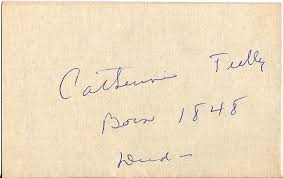 Catherine Tully
Born 1848
Died –